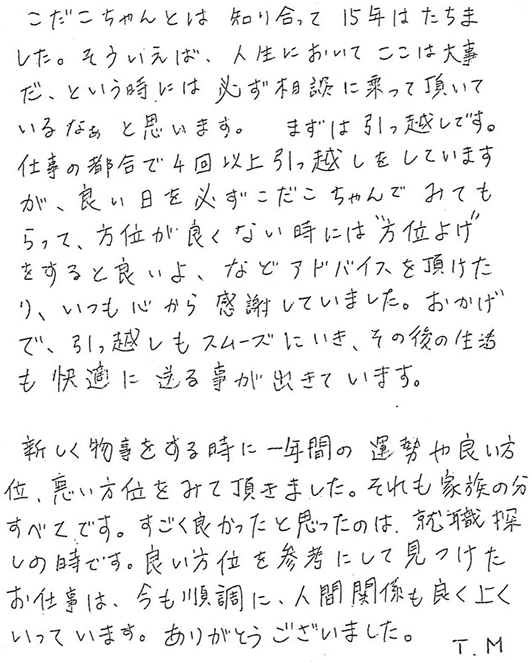 こだこちゃんとは 知り合って 15年はたちま
した。そういえば、人生において ここは大事
だ、という時には 必ず相談に乗って頂いて
いるなぁ と思います。 まずは引っ越しです。
仕事の都合で4回以上引っ越しをしています
が、良い日を必ずこだこちゃんで みても
らって、方位が良くない時には"方位よけ"
をすると良いよ、などアドバイスを頂けた
り、いつも心から 感謝していました。おかげ
で、引っ越しもスムーズにいき、その後の生活
も 快適に 送る事が出きています。
新しく物事をする時に一年間の 運勢や良い方
位、悪い方位をみて頂きました。それも家族の分
すべてです。すごく良かったと思ったのは、就職探
しの時です。良い方位を参考にして見つけた
お仕事は、今も順調に、人間関係も良く上く
いっています。ありがとうございました。
T.M